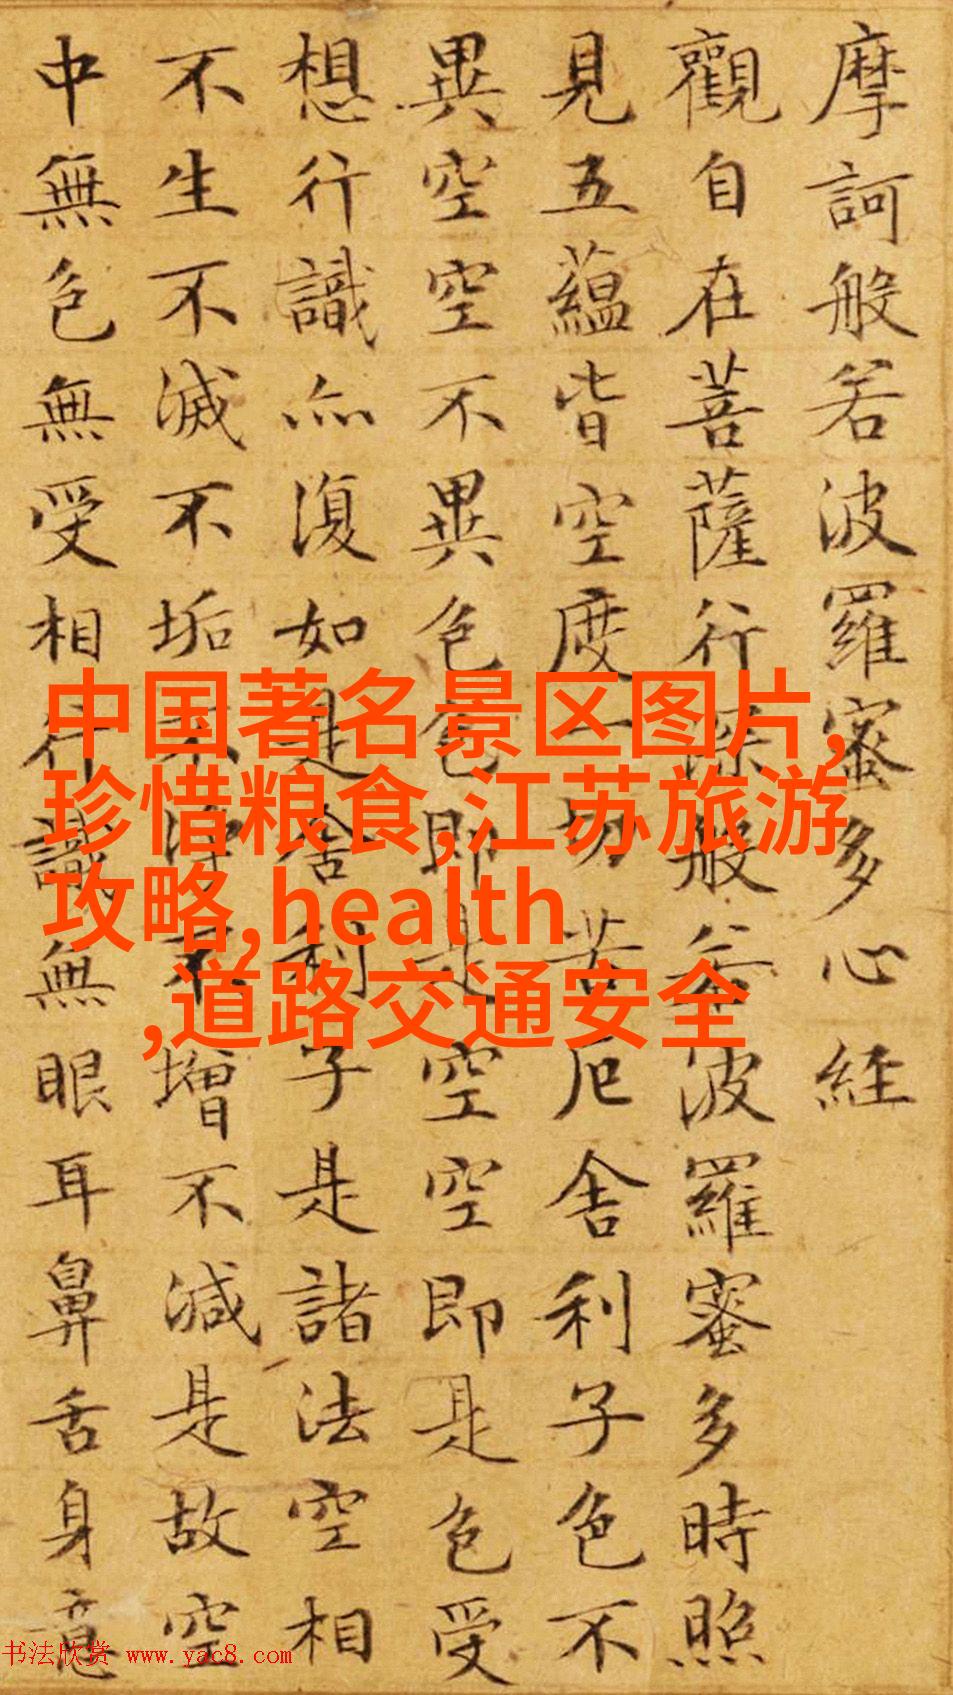 摩訶般若波羅蜜多心經
觀自在菩薩行深般若波羅蜜多時照
見五蘊皆空度一切苦厄舍利子色不
異空空不異色色即是空空即是色受
想行識亦復如是舍利子是諸法空相
不生不滅不垢不淨不增不減是故空
中無色無受相行識無眼耳鼻舌身意
中国著名景区图片,
珍惜粮食,江苏旅游
攻略,health
,道路交通安全
书法欣赏 www.yac8.com